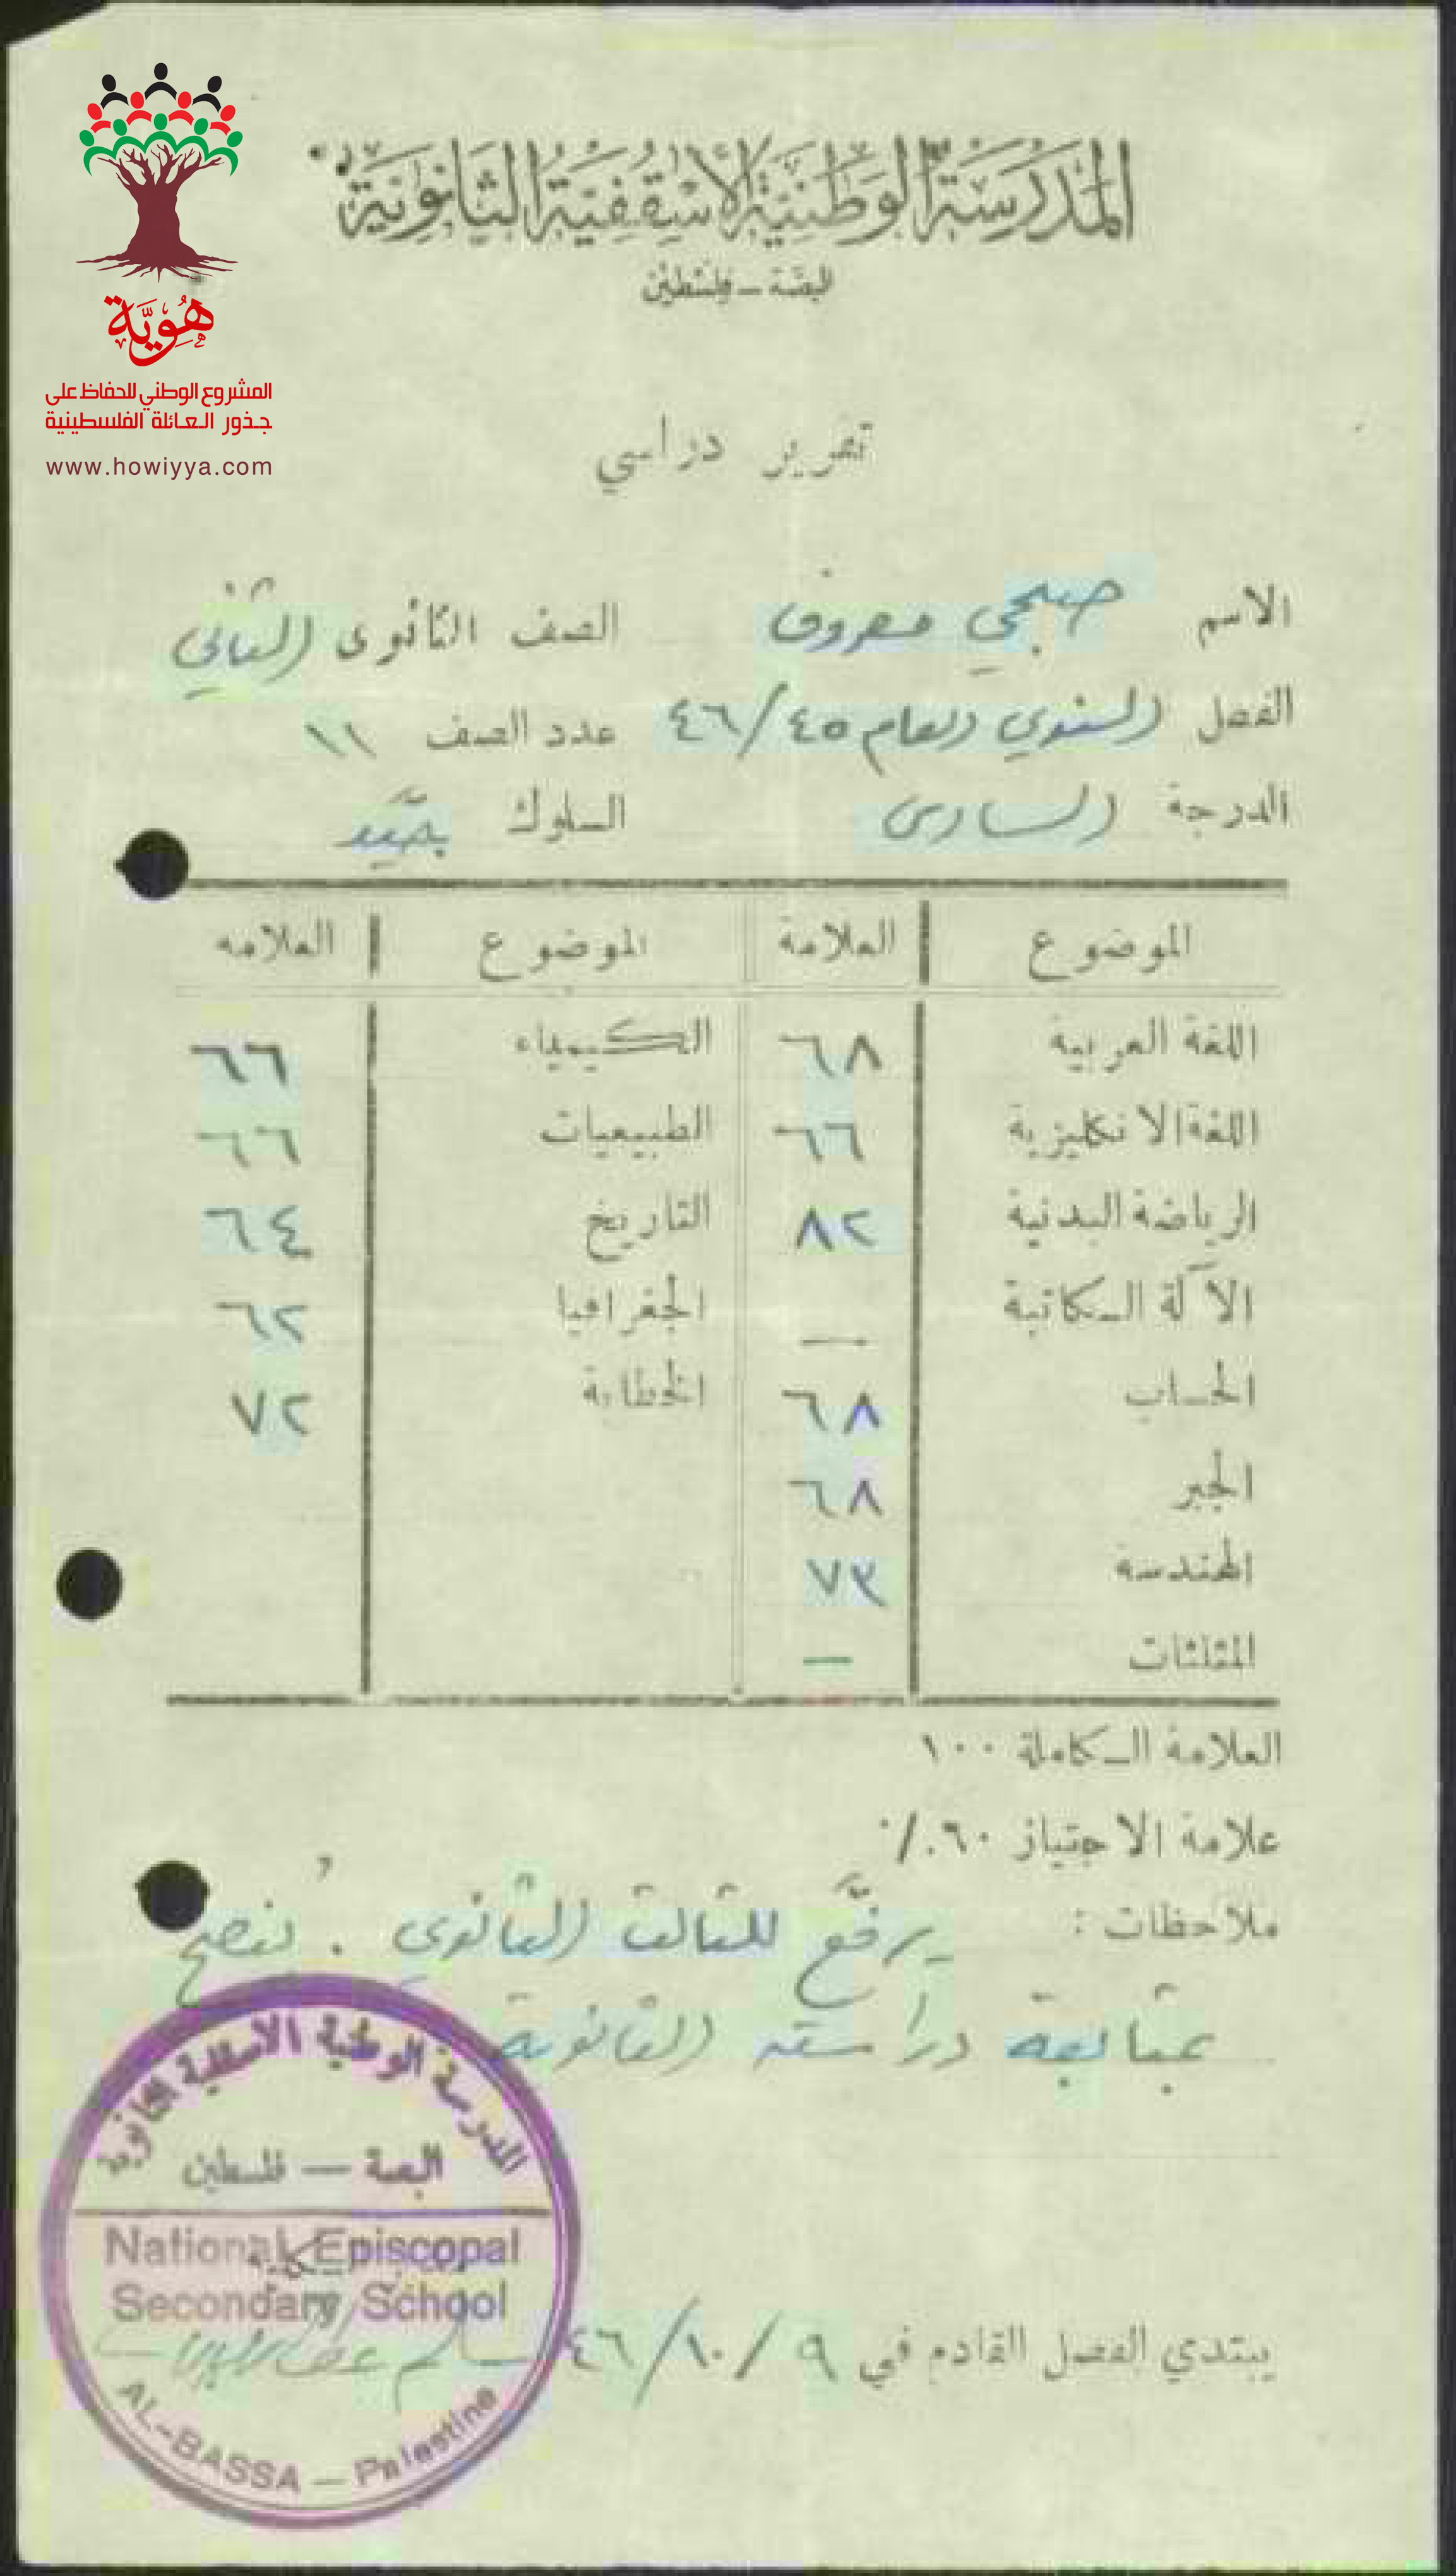 المدرسة الوطنية الاسقفية الثانوية
البصة - فلسطين
هوية
المشروع الوطني للحفاظ على
جذور العائلة الفلسطينية
www.howiyya.com
تقرير دراسي
الاسم صبحي معروف الصف الثانوى الثاني
الفصل السنوي والعام ٤٥/٤٦ عدد الصف ١١
الدرجة السادس السلوك جيّد
الموضوع العلامة الموضوع العلامه
اللغة العربية ٦٨ الكيمياء ٦٦
اللغة الانكليزية ٦٦ الطبيعيات ٦٦
الرياضة البدنية ٨٢ التاريخ ٦٤
الآلة الكاتبة — الجغرافيا ٦٢
الحساب ٦٨ الخطابة ٧٢
الجبر ٦٨
الهندسة ٧٣
المثلثات —
العلامة الكاملة ١٠٠
علامة الاجتياز ٦٠٪
ملاحظات : يرفّع للثالث الثانوي . يُنصح
بمتابعة دراسته الثانوية
المدرسة الوطنية الاسقفية الثانوية
البصة — فلسطين
National Episcopal
Secondary School
AL-BASSA — Palestine
يبتدي الفصل القادم في ٩/١٠/٤٦